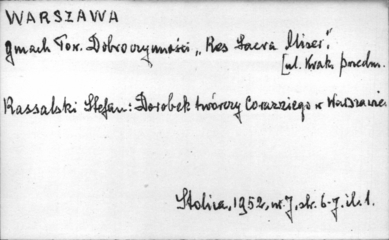 WARSZAWA
gmach Tow. Dobroczynności „Res Sacra Miser".
[ul. Krak. przedm.
Kassalski Stefan: Dorobek twórczy Corazziego w Warszawie.
Stolica, 1952, nr 7, str. 6-7, il. 1.